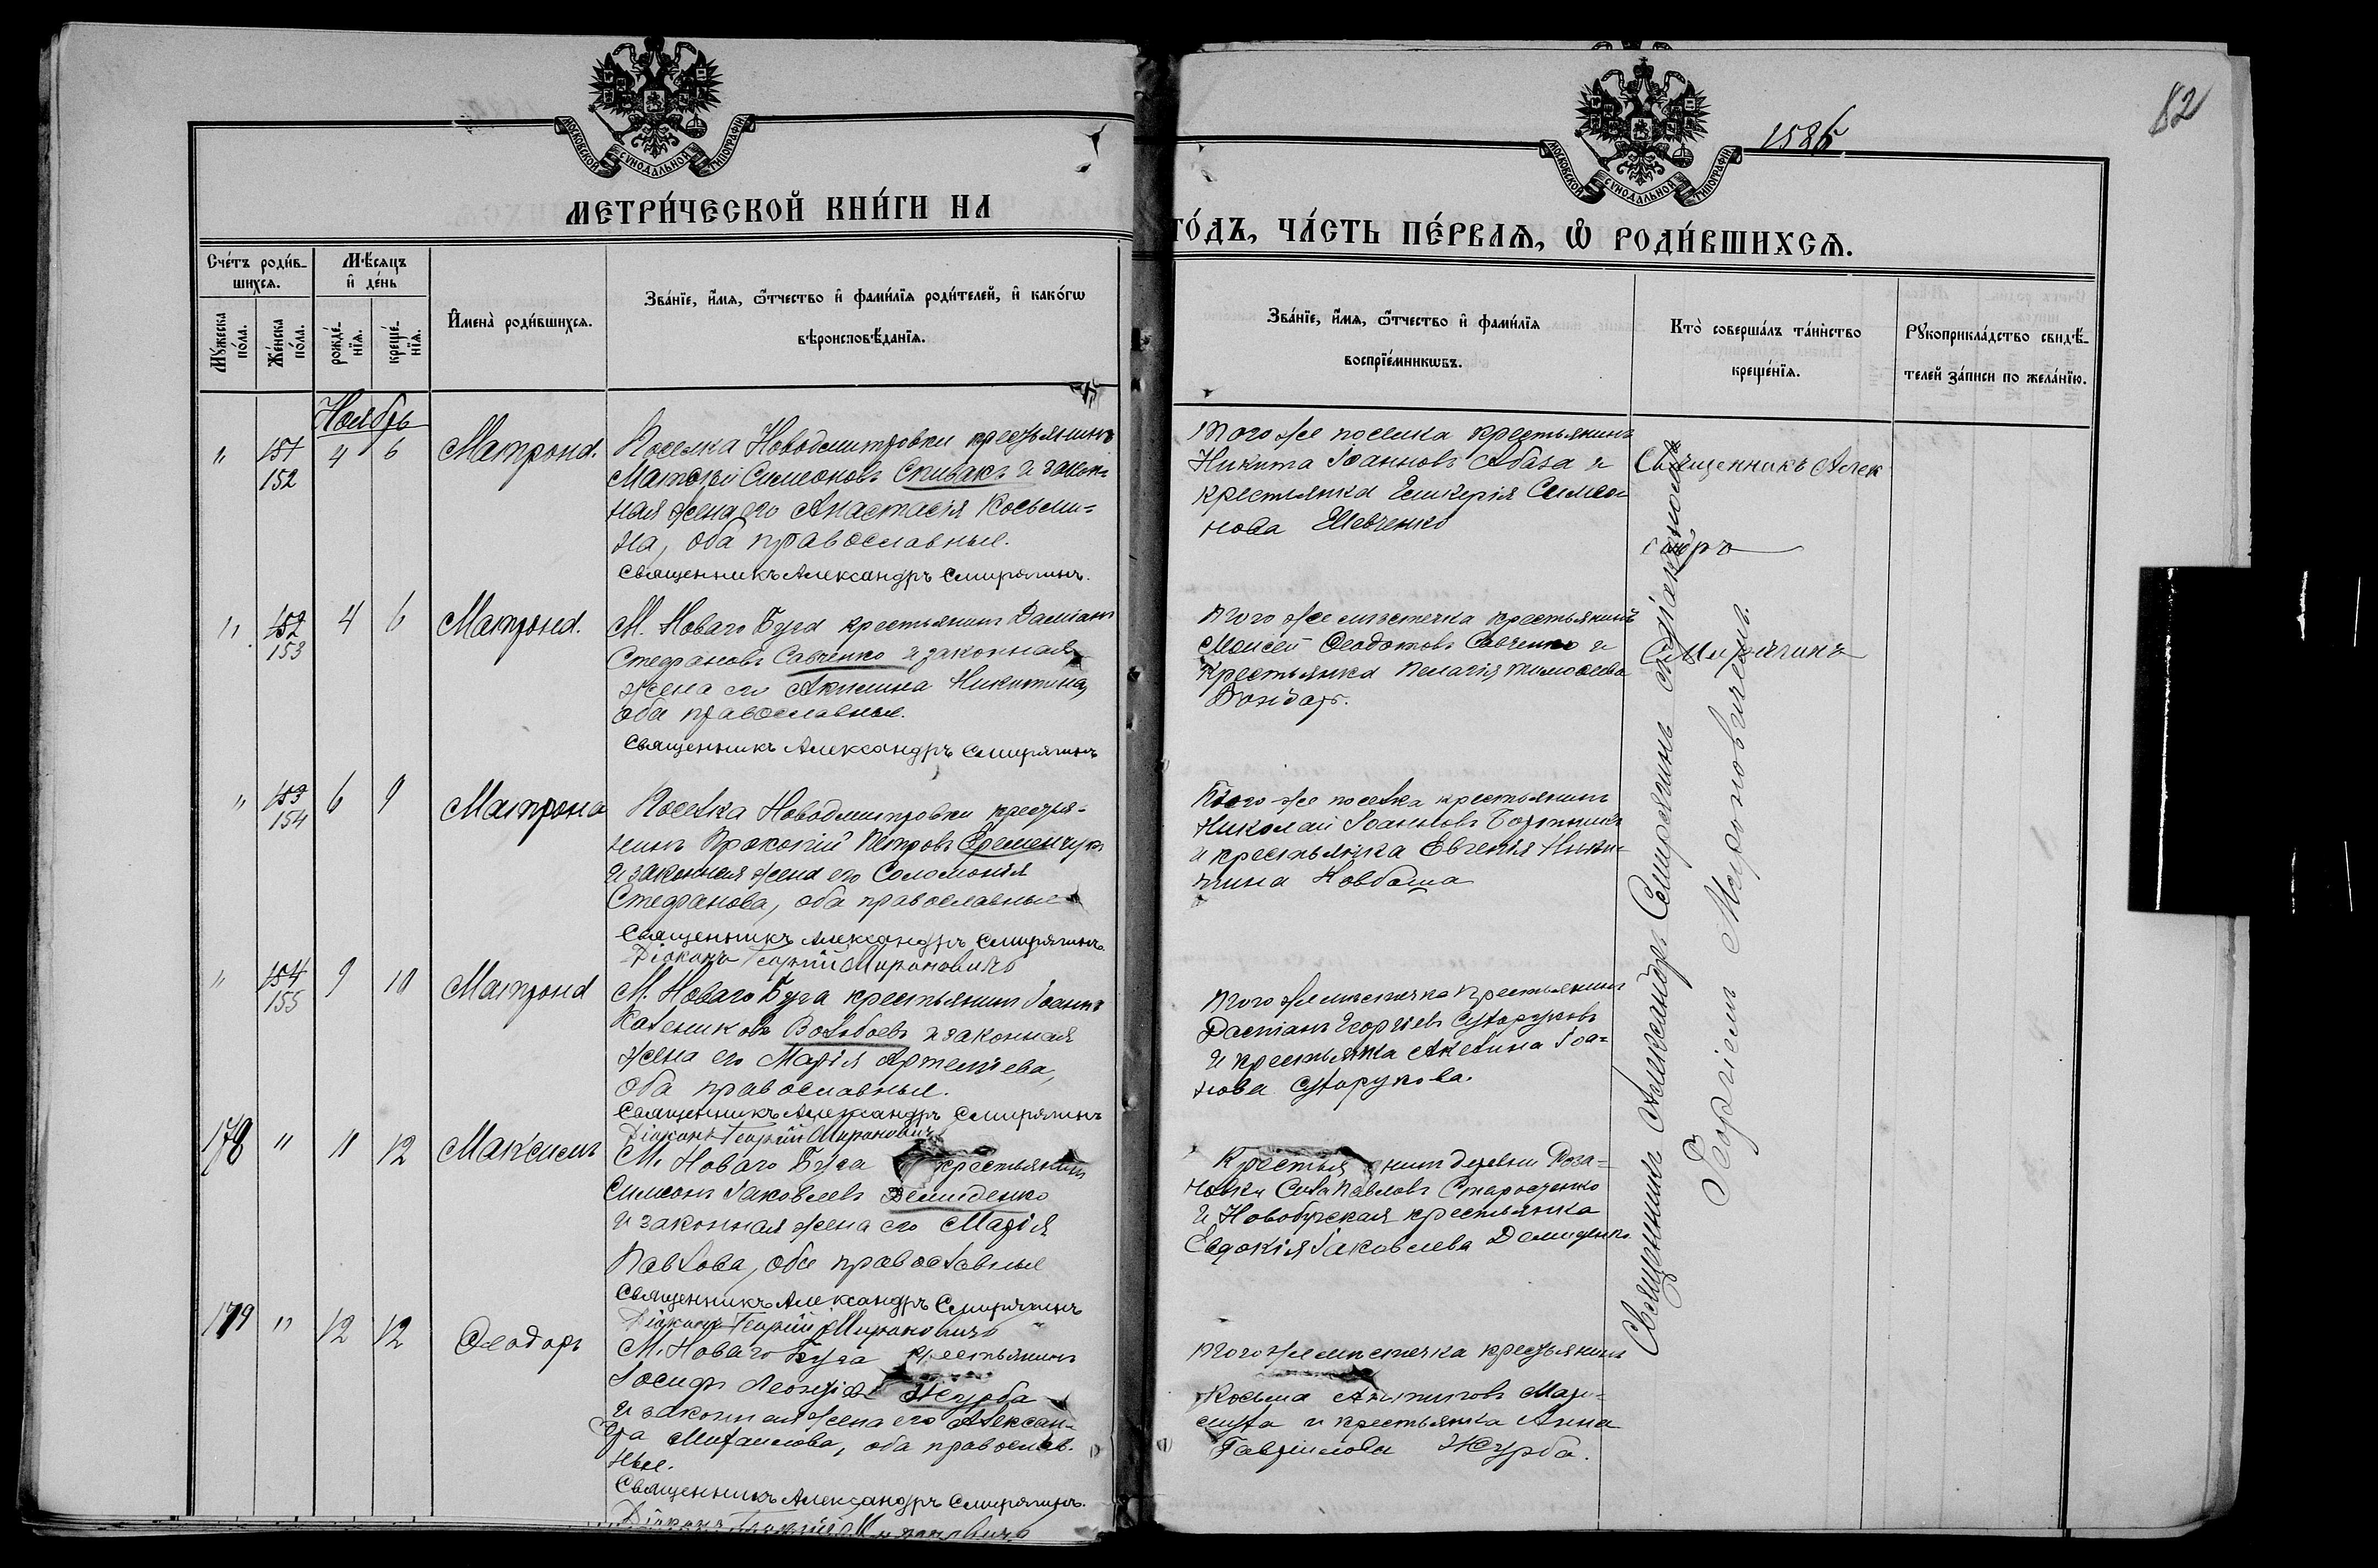 82
1886
МОСКОВСКОЙ СУНОДАЛЬНОЙ ТИПОГРАФІИ
МОСКОВСКОЙ СУНОДАЛЬНОЙ ТИПОГРАФІИ
МЕТРИ́ЧЕСКОЙ КНИ́ГИ НА
ГО́ДЪ, ЧА́СТЬ ПЕ́РВАѦ, Ѡ҆ РОДИ́ВШИХСѦ.
Сче́тъ роди́в-
шихсѧ.
Мꙋ́жеска по́ла.
Же́нска по́ла.
Мѣ́сѧцъ
и҆ де́нь
рожде́-
нїѧ.
креще́-
нїѧ.
И҆мена̀ роди́вшихсѧ.
Зва́нїе, и҆́мѧ, ѻ҆́тчество и҆ фами́лїѧ роди́телей, и҆ како́гѡ
вѣроисповѣ́данїѧ.
Зва́нїе, и҆́мѧ, ѻ҆́тчество и҆ фами́лїѧ
воспрїе́мникѡвъ.
Кто̀ соверша́лъ та́инство
креще́нїѧ.
Рꙋкоприкла́дство свидѣ́-
телей за́писи по жела́нїю.
Ноябрь
" 151 4 6 Матрона.
152
Поселка Новодмитровки крестьянинъ
Матѳей Симеоновъ Спивакъ и закон-
ная жена его Анастасія Косьми-
на, оба православные.
Священникъ Александръ Смирягинъ.
Того же поселка крестьянинъ
Никита Іоанновъ Абаза и
крестьянка Гликерія Симео-
нова Шевченко
Священникъ Алек
сандръ
Смирягинъ
" 152 4 6 Матрона.
153
М. Новаго Буга крестьянинъ Даміанъ
Стефановъ Савченко и законная
жена его Акилина Никитина,
оба православные.
Священникъ Александръ Смирягинъ
Того же мѣстечка крестьянинъ
Моисей Ѳеодотовъ Савченко и
крестьянка Пелагія Тимоѳеева
Бондарь.
" 153 6 9 Матрона
154
Поселка Новодмитровки крестья-
нинъ Прокопій Петровъ Еременчукъ
и законная жена его Соломонія
Стефанова, оба православные
Священникъ Александръ Смирягинъ.
Діаконъ Георгій Мироновичъ
Того же поселка крестьянинъ
Николай Іоанновъ
и крестьянка Евгенія Ники-
тина Ковбаша
" 154 9 10 Матрона
155
М. Новаго Буга крестьянинъ Іоаннъ
Калениковъ и законная
жена его Марія Артеміева,
оба православные.
Священникъ Александръ Смирягинъ
Діаконъ Георгій Мироновичъ
Того же мѣстечка крестьянинъ
Георгіевъ Сухоруковъ
и крестьянка Акилина Іоа-
нова Сухорукова.
178 " 11 12 Максимъ
М. Новаго Буга крестьянинъ
Симеонъ Іаковлевъ Демиденко
и законная жена его Марія
Павлова, оба православные
Священникъ Александръ Смирягинъ
Діаконъ Георгій Мироновичъ
Крестьянинъ деревни Роза-
новки Сила Павловъ
и Новобугская крестьянка
Евдокія Іаковлева Демиденко
179 " 12 12 Ѳеодоръ
М. Новаго Буга крестьянинъ
Іосифъ Леонтіевъ Журба
и законная жена его Алексан-
дра Михаилова, оба православ-
ные.
Священникъ Александръ Смирягинъ.
Діаконъ Георгій Мироновичъ
Того же мѣстечка крестьянинъ
Косьма Антиповъ
и крестьянка Анна
Гавриилова Журба.
Священникъ Александръ Смирягинъ съ діакономъ
Георгіемъ Мироновичемъ.